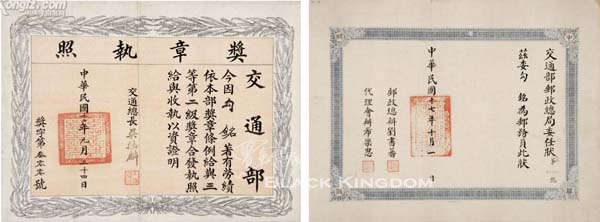 照執章獎
交通部
今因勻 銘著有勞績
依本部獎章條例給與三
等第二級獎章合發執照
給與收執以資證明
交通總長
中華民國十三年九月二十四日
獎字第叁零零號
交通部郵政總局委任狀
茲委勻 銘為郵務員此狀
中華民國十七年十月一日
郵政總辦劉書蕃
代理會辦希樂思
BLACK KINGDOM